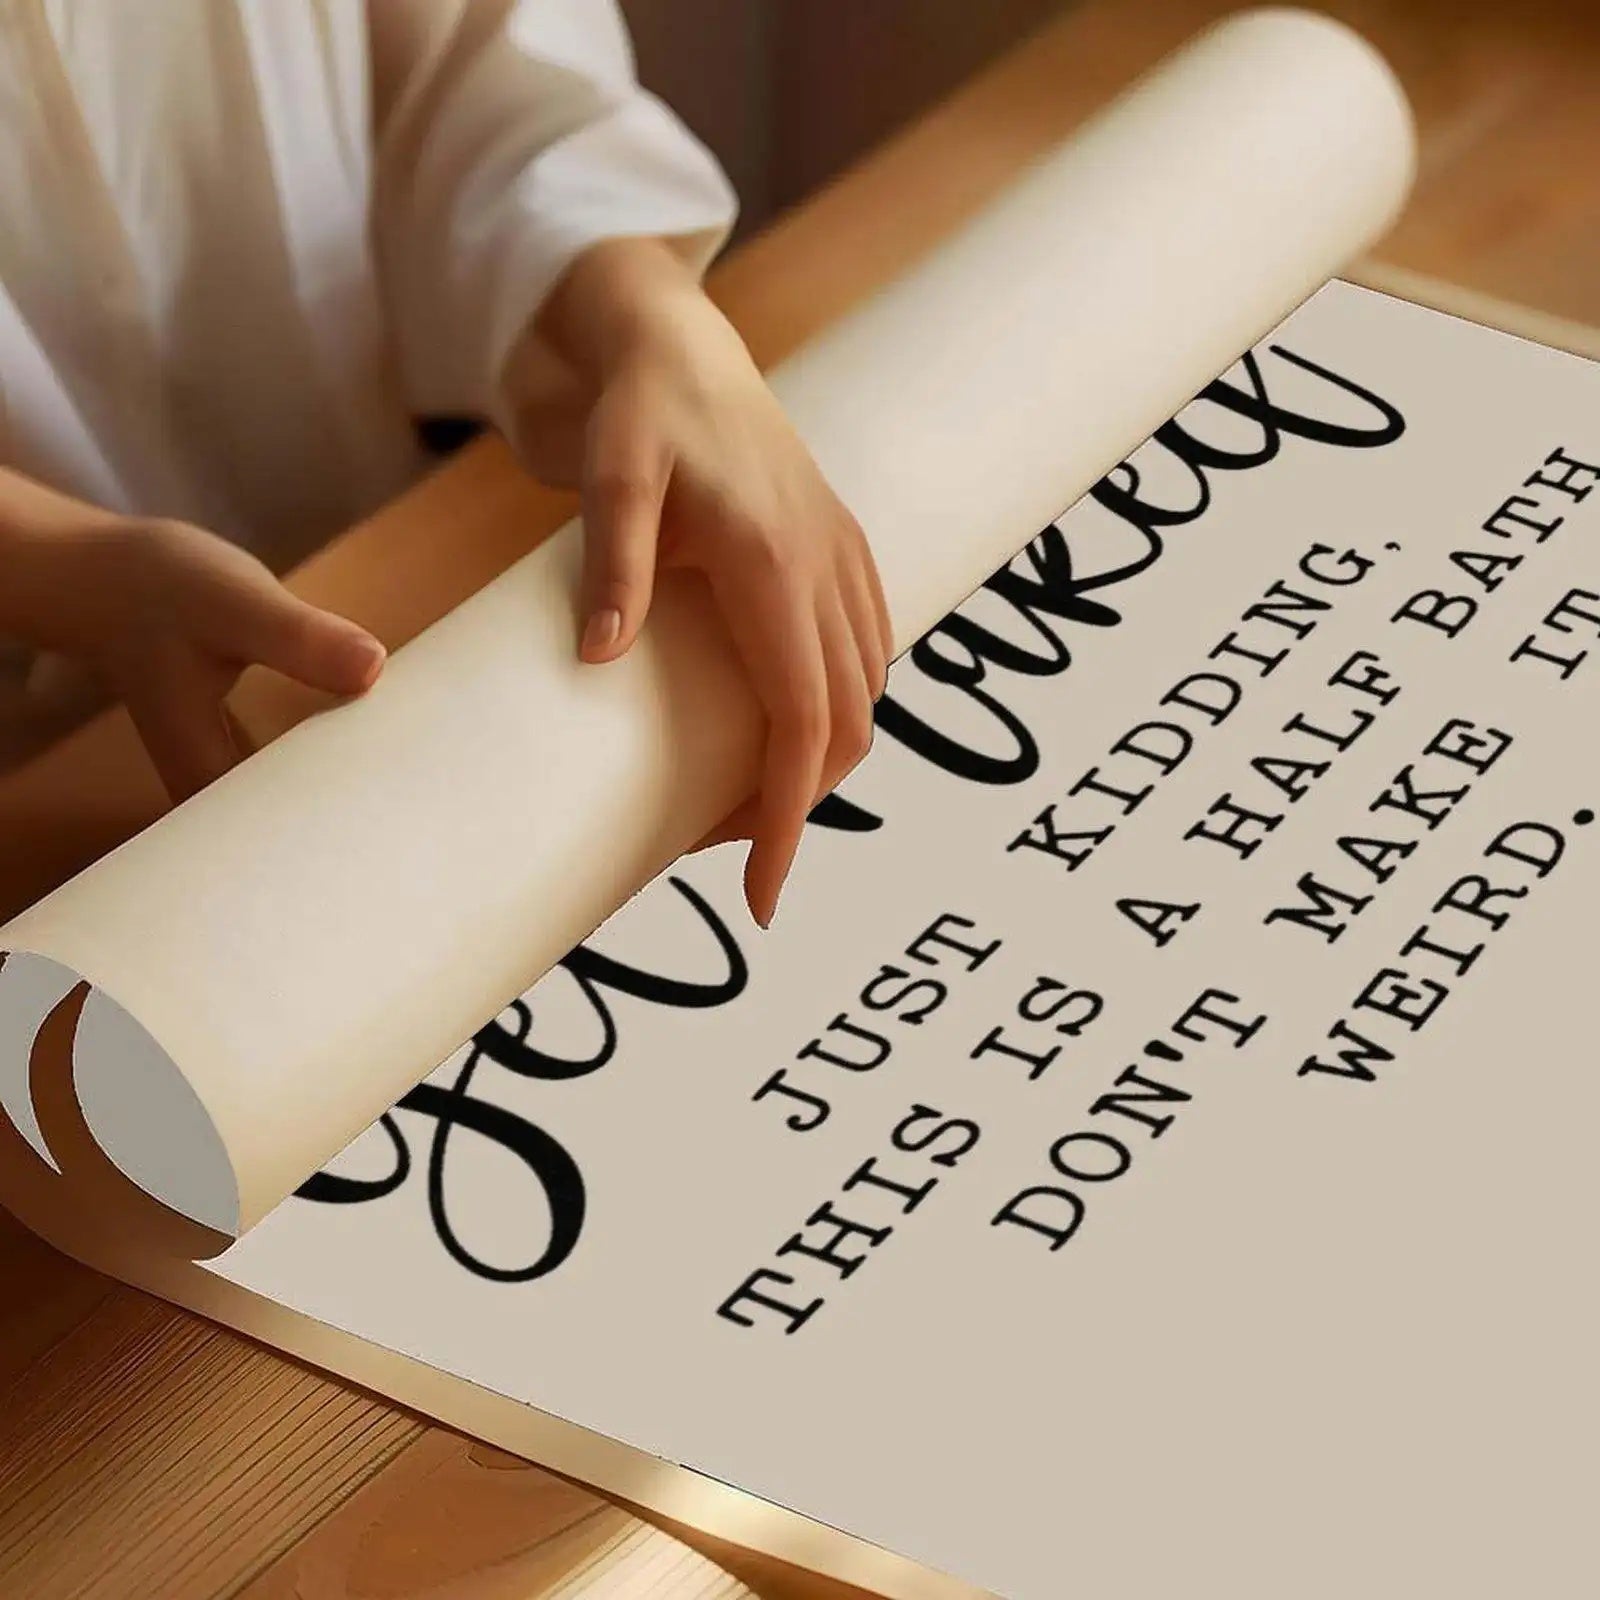 get naked
JUST KIDDING,
THIS IS A HALF BATH
DON'T MAKE IT
WEIRD.